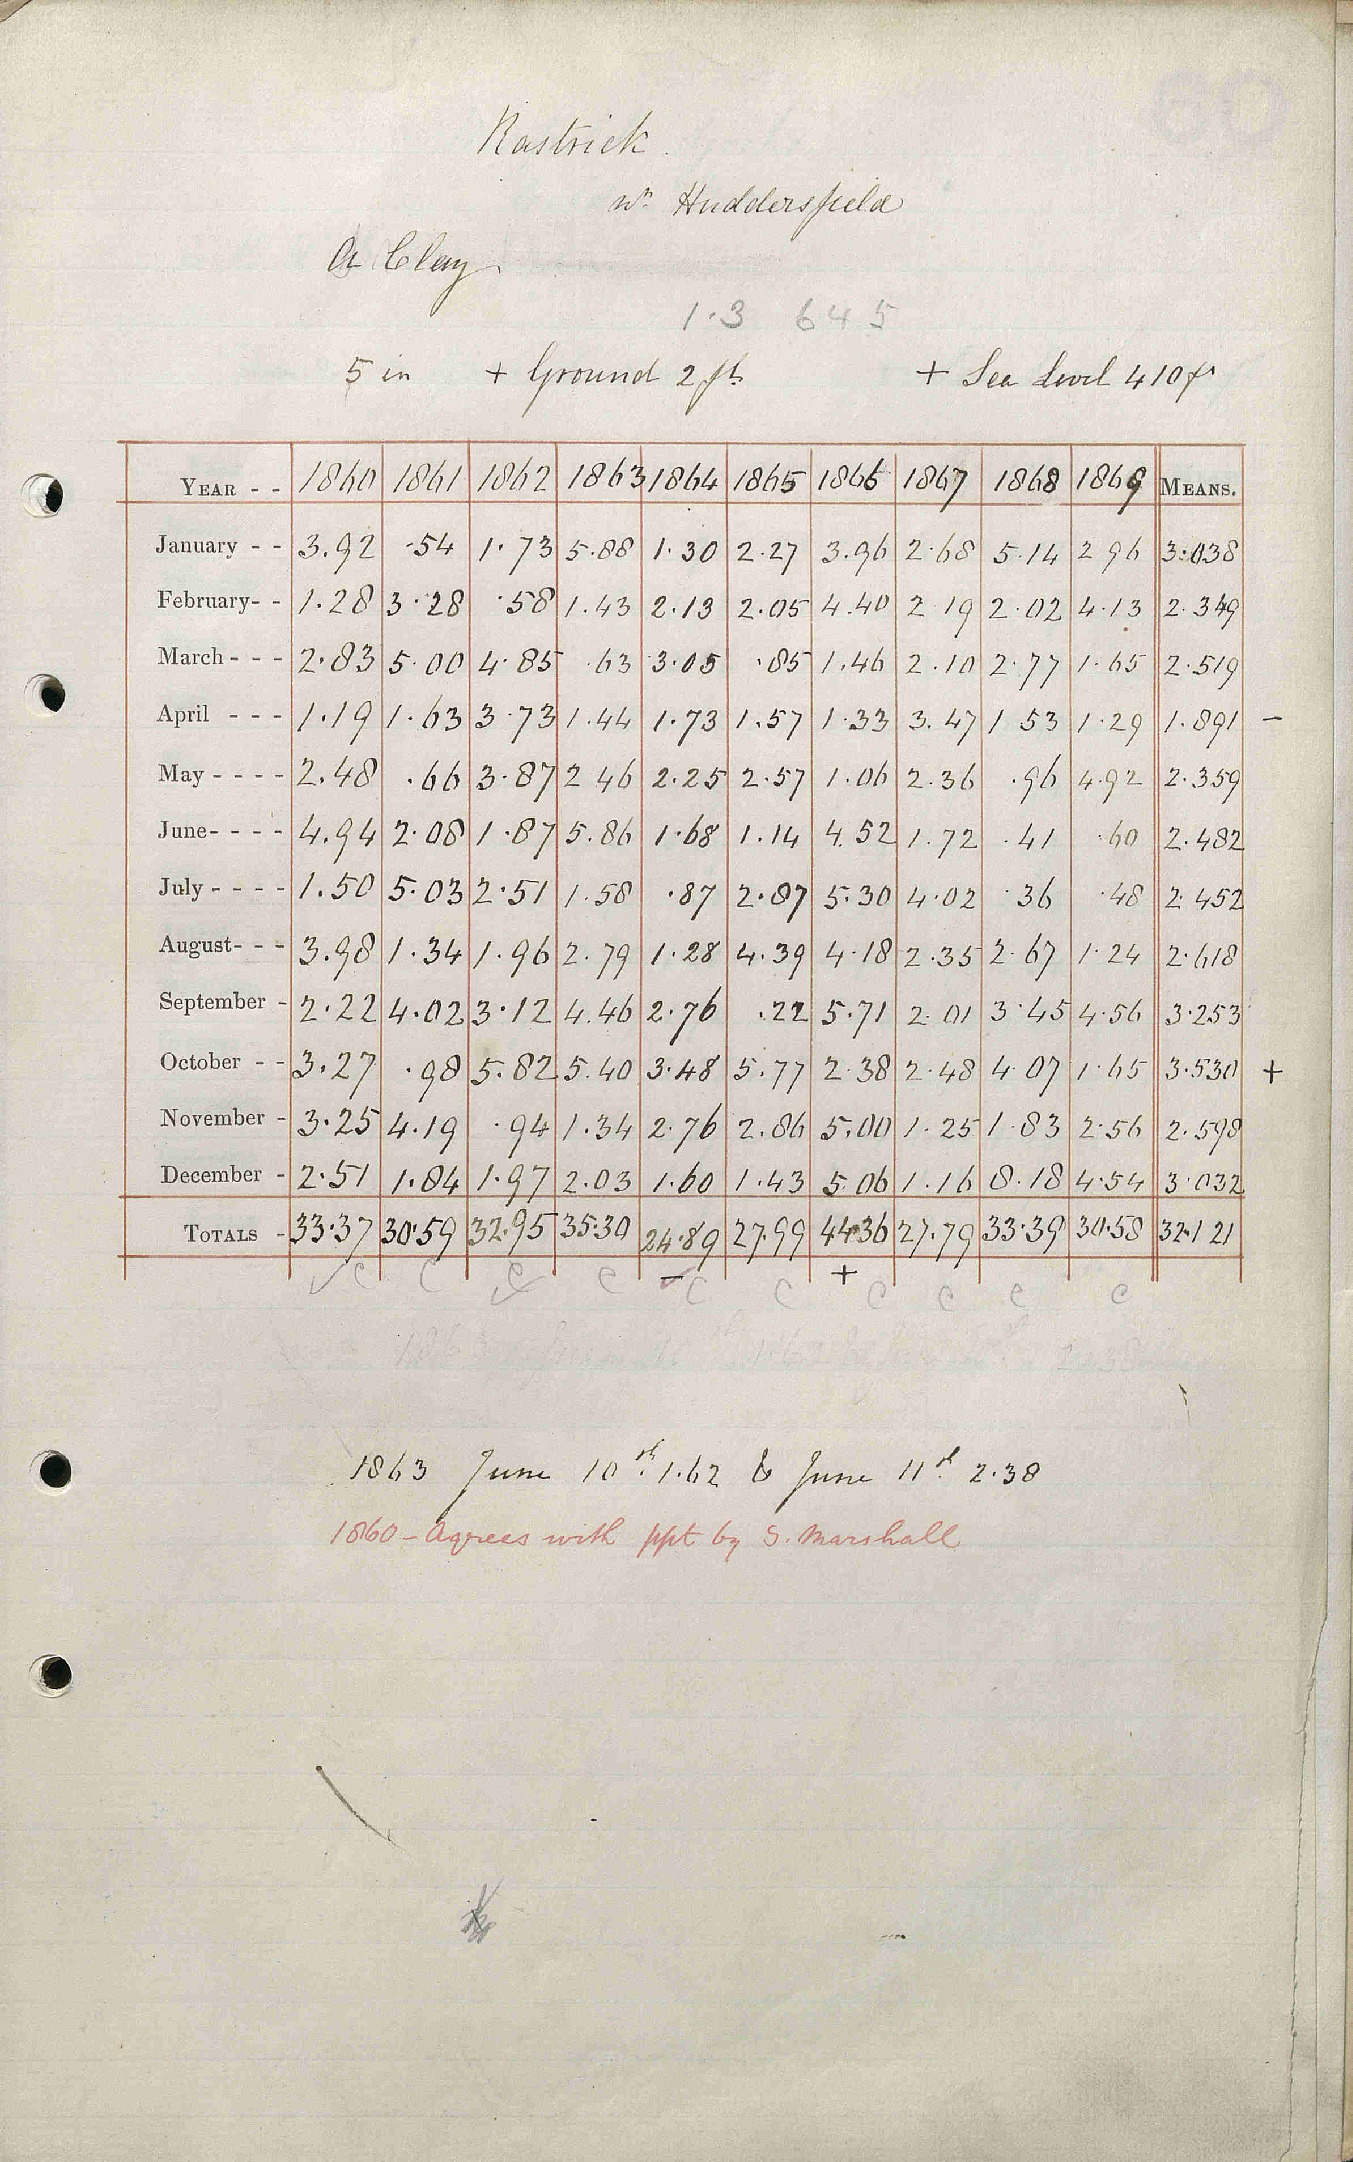 Rastrick
nr Huddersfield
A Clay
1.3 645
5 in + Ground 2 ft + Sea Level 410 ft
YEAR - - 1860 1861 1862 1863 1864 1865 1866 1867 1868 1869 MEANS.
January - - 3.92 .54 1.73 5.88 1.30 2.27 3.96 2.68 5.14 2 96 3.038
February- - 1.28 3.28 .58 1.43 2.13 2.05 4.40 2 19 2.02 4.13 2.349
March - - - 2.83 5.00 4.85 .63 3.05 .85 1.46 2.10 2.77 1.65 2.519
April - - - 1.19 1.63 3.73 1.44 1.73 1.57 1.33 3.47 1 53 1.29 1.891 -
May - - - - 2.48 .66 3.87 2 46 2.25 2.57 1.06 2.36 .96 4.92 2.359
June- - - - 4.94 2.08 1.87 5.86 1.68 1.14 4.52 1.72 .41 .60 2.482
July - - - - 1.50 5.03 2.51 1.58 .87 2.87 5.30 4.02 .36 .48 2.452
August- - - 3.98 1.34 1.96 2.79 1.28 4.39 4.18 2.35 2.67 1.24 2.618
September - 2.22 4.02 3.12 4.46 2.76 .22 5.71 2.01 3.45 4.56 3.253
October - - 3.27 .98 5.82 5.40 3.48 5.77 2.38 2.48 4.07 1.65 3.530 +
November - 3.25 4.19 .94 1.34 2.76 2.86 5.00 1.25 1.83 2.56 2.598
December - 2.51 1.84 1.97 2.03 1.60 1.43 5.06 1.16 8.18 4.54 3.032
TOTALS - 33.37 30.59 32.95 35.30 24.89 27.99 44.36 27.79 33.39 30.58 32.121
✓ c c c ✓ c - c c + c c c c
1863 June 10th 1.62 & June 11th 2.38
1860 - Agrees with ppt by S. Marshall